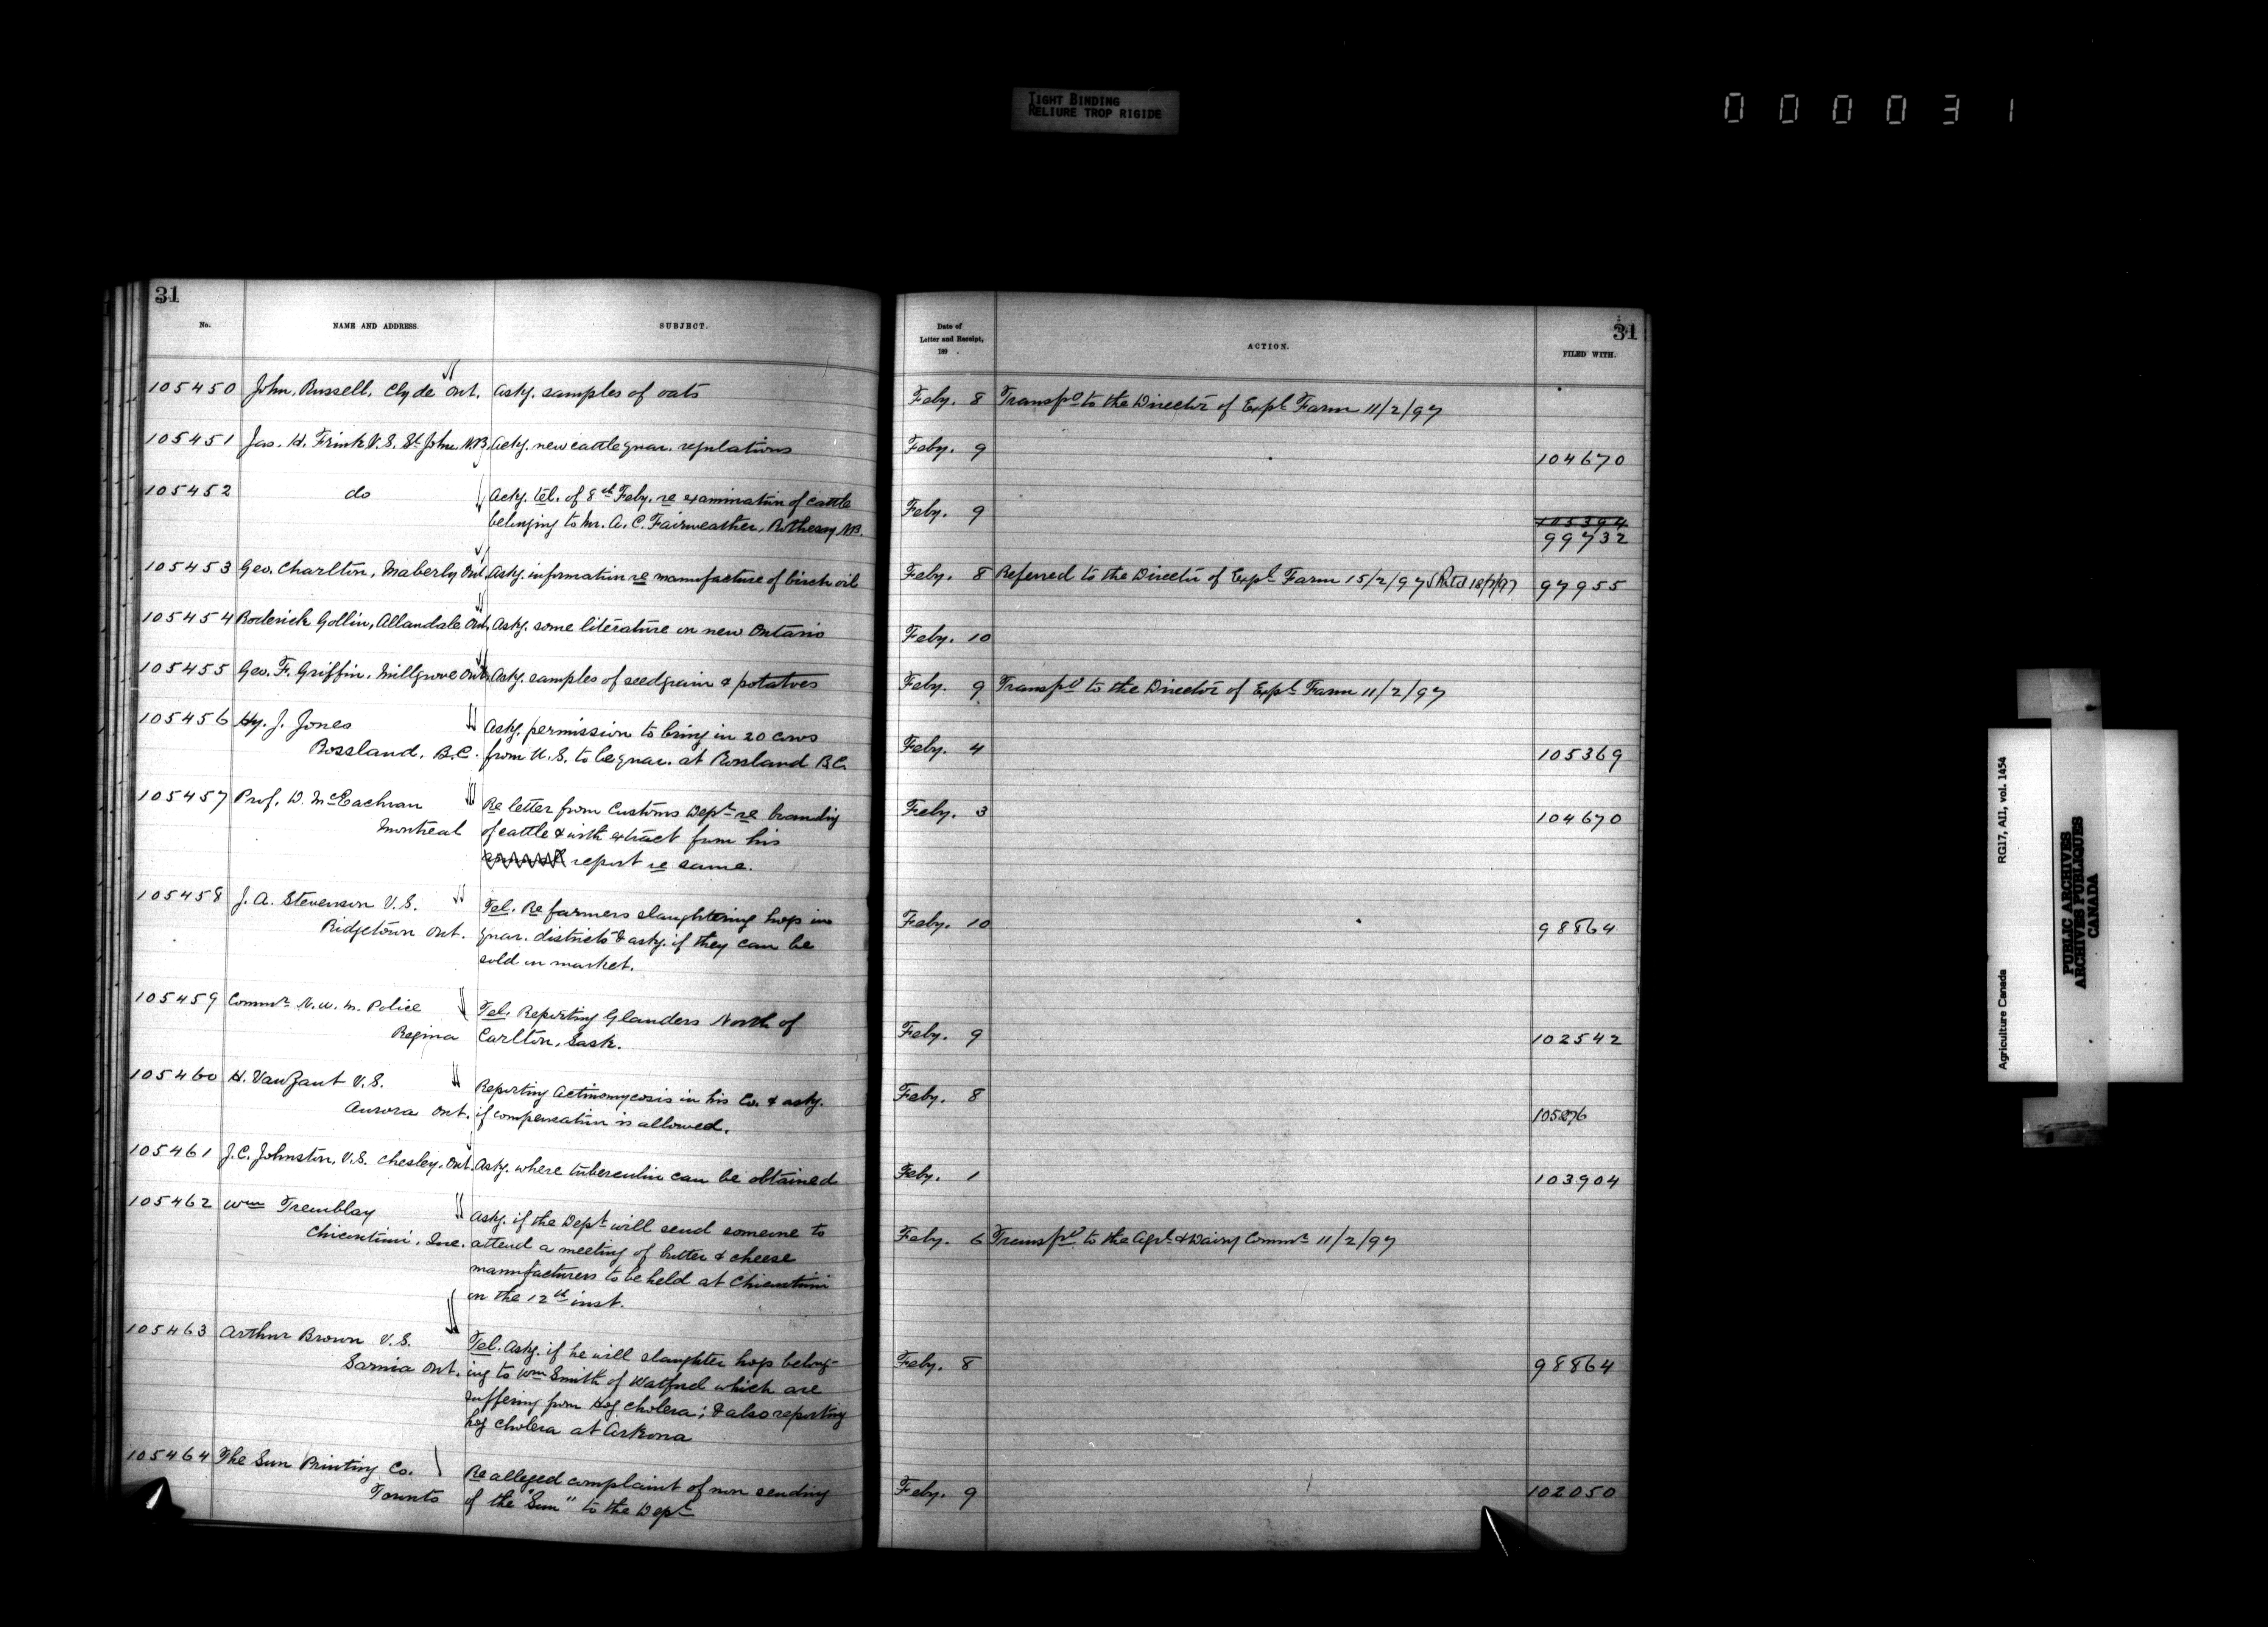 TIGHT BINDING
RELIURE TROP RIGIDE
000031
31
No. NAME AND ADDRESS. SUBJECT.
105450 John Russell, Clyde Ont. Askg. samples of oats
105451 Jas. H. Frink V.S. St John N.B. Ackg. new cattle quar. regulations
105452 do Ackg. tel. of 8th Feby. re examination of cattle
belonging to Mr. A. C. Fairweather, Rothesay NB.
105453 Geo. Charlton, Maberly Ont. Askg. information re manufacture of birch oil
105454 Roderick Gollin, Allandale Ont. Askg. some literature on new Ontario
105455 Geo. F. Griffin, Millgrove Ont. Askg. samples of seed grain & potatoes
105456 Hy. J. Jones Askg. permission to bring in 20 cows
Rossland, B.C. from U.S. to be quar. at Rossland B.C.
105457 Prof. D. McEachran Re letter from Customs Dept re branding
Montreal of cattle & with extract from his
report re same.
105458 J. A. Stevenson V.S. Tel. Re farmers slaughtering hogs in
Ridgetown Ont. quar. districts & askg. if they can be
sold on market.
105459 Commr N. W. M. Police Tel. Reporting Glanders North of
Regina Carlton, Sask.
105460 H. VanZant V.S. Reporting Actinomycosis in his Co. & askg.
Aurora Ont. if compensation is allowed.
105461 J. C. Johnston, V.S. Chesley, Ont. Askg. where tuberculin can be obtained
105462 Wm Tremblay Askg. if the Dept will send someone to
Chicoutimi, Que. attend a meeting of butter & cheese
manufacturers to be held at Chicoutimi
on the 12th inst.
105463 Arthur Brown V.S. Tel. Askg. if he will slaughter hogs belong-
Sarnia Ont. ing to Wm Smith of Watford which are
suffering from Hog cholera; & also reporting
hog cholera at Arkona
105464 The Sun Printing Co. Re alleged complaint of non sending
Toronto of the "Sun" to the Dept
31
Date of
Letter and Receipt,
189 .
ACTION.
FILED WITH.
Feby. 8 Transfd to the Director of Expl Farm 11/2/97
Feby. 9 104670
Feby. 9 105394
99732
Feby. 8 Referred to the Director of Expl Farm 15/2/97 97955
Feby. 10
Feby. 9 Transfd to the Director of Expl Farm 11/2/97
Feby. 4 105369
Feby. 3 104670
Feby. 10 98864
Feby. 9 102542
Feby. 8
Feby. 1 103904
Feby. 6 Transfd to the Agrl & Dairy Commr 11/2/97
Feby. 8 98864
Feby. 9 102050
Agriculture Canada RG17, AII, vol. 1454
PUBLIC ARCHIVES
ARCHIVES PUBLIQUES
CANADA